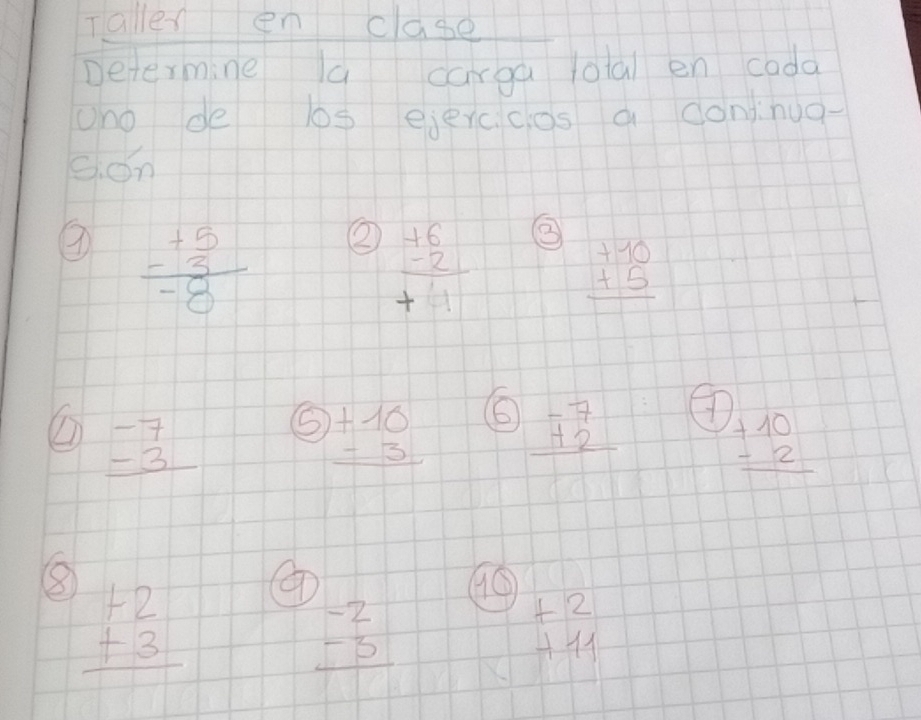 Taller en clase
Determine la carga total en cada
uno de los ejercicios a continua-
sión
1 +5 2 +6 3 +10
- 3 -2 + 5
- 8 + 4
4 -7 5 +10 6 -7 7 +10
-3 - 3 +2 - 2
8 +2 9 -2 10 +2
+3 -3 +11